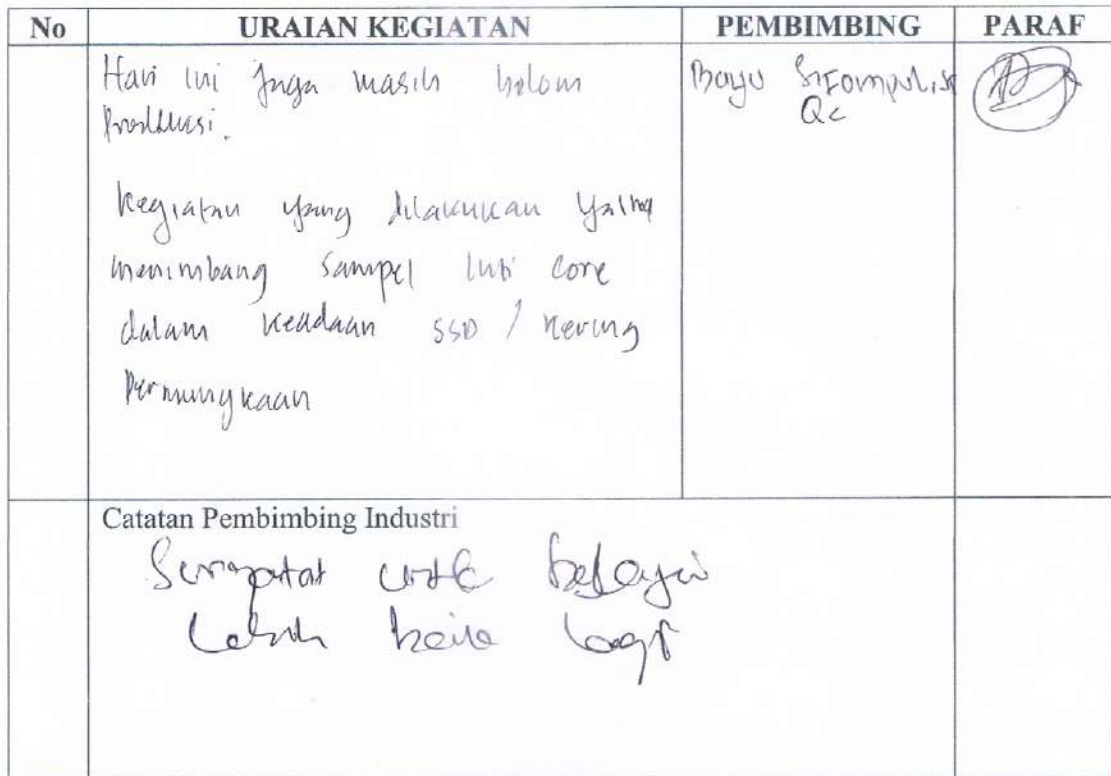 No URAIAN KEGIATAN PEMBIMBING PARAF
Hari ini juga masih belom
Produksi.
Bayu Sitompul
Qc
kegiatan yang dilakukan yaitu
menimbang sampel inti core
dalam keadaan SSD / kering
Permungkaan
Catatan Pembimbing Industri
Semangat untk belajar
Lebih baik lagi